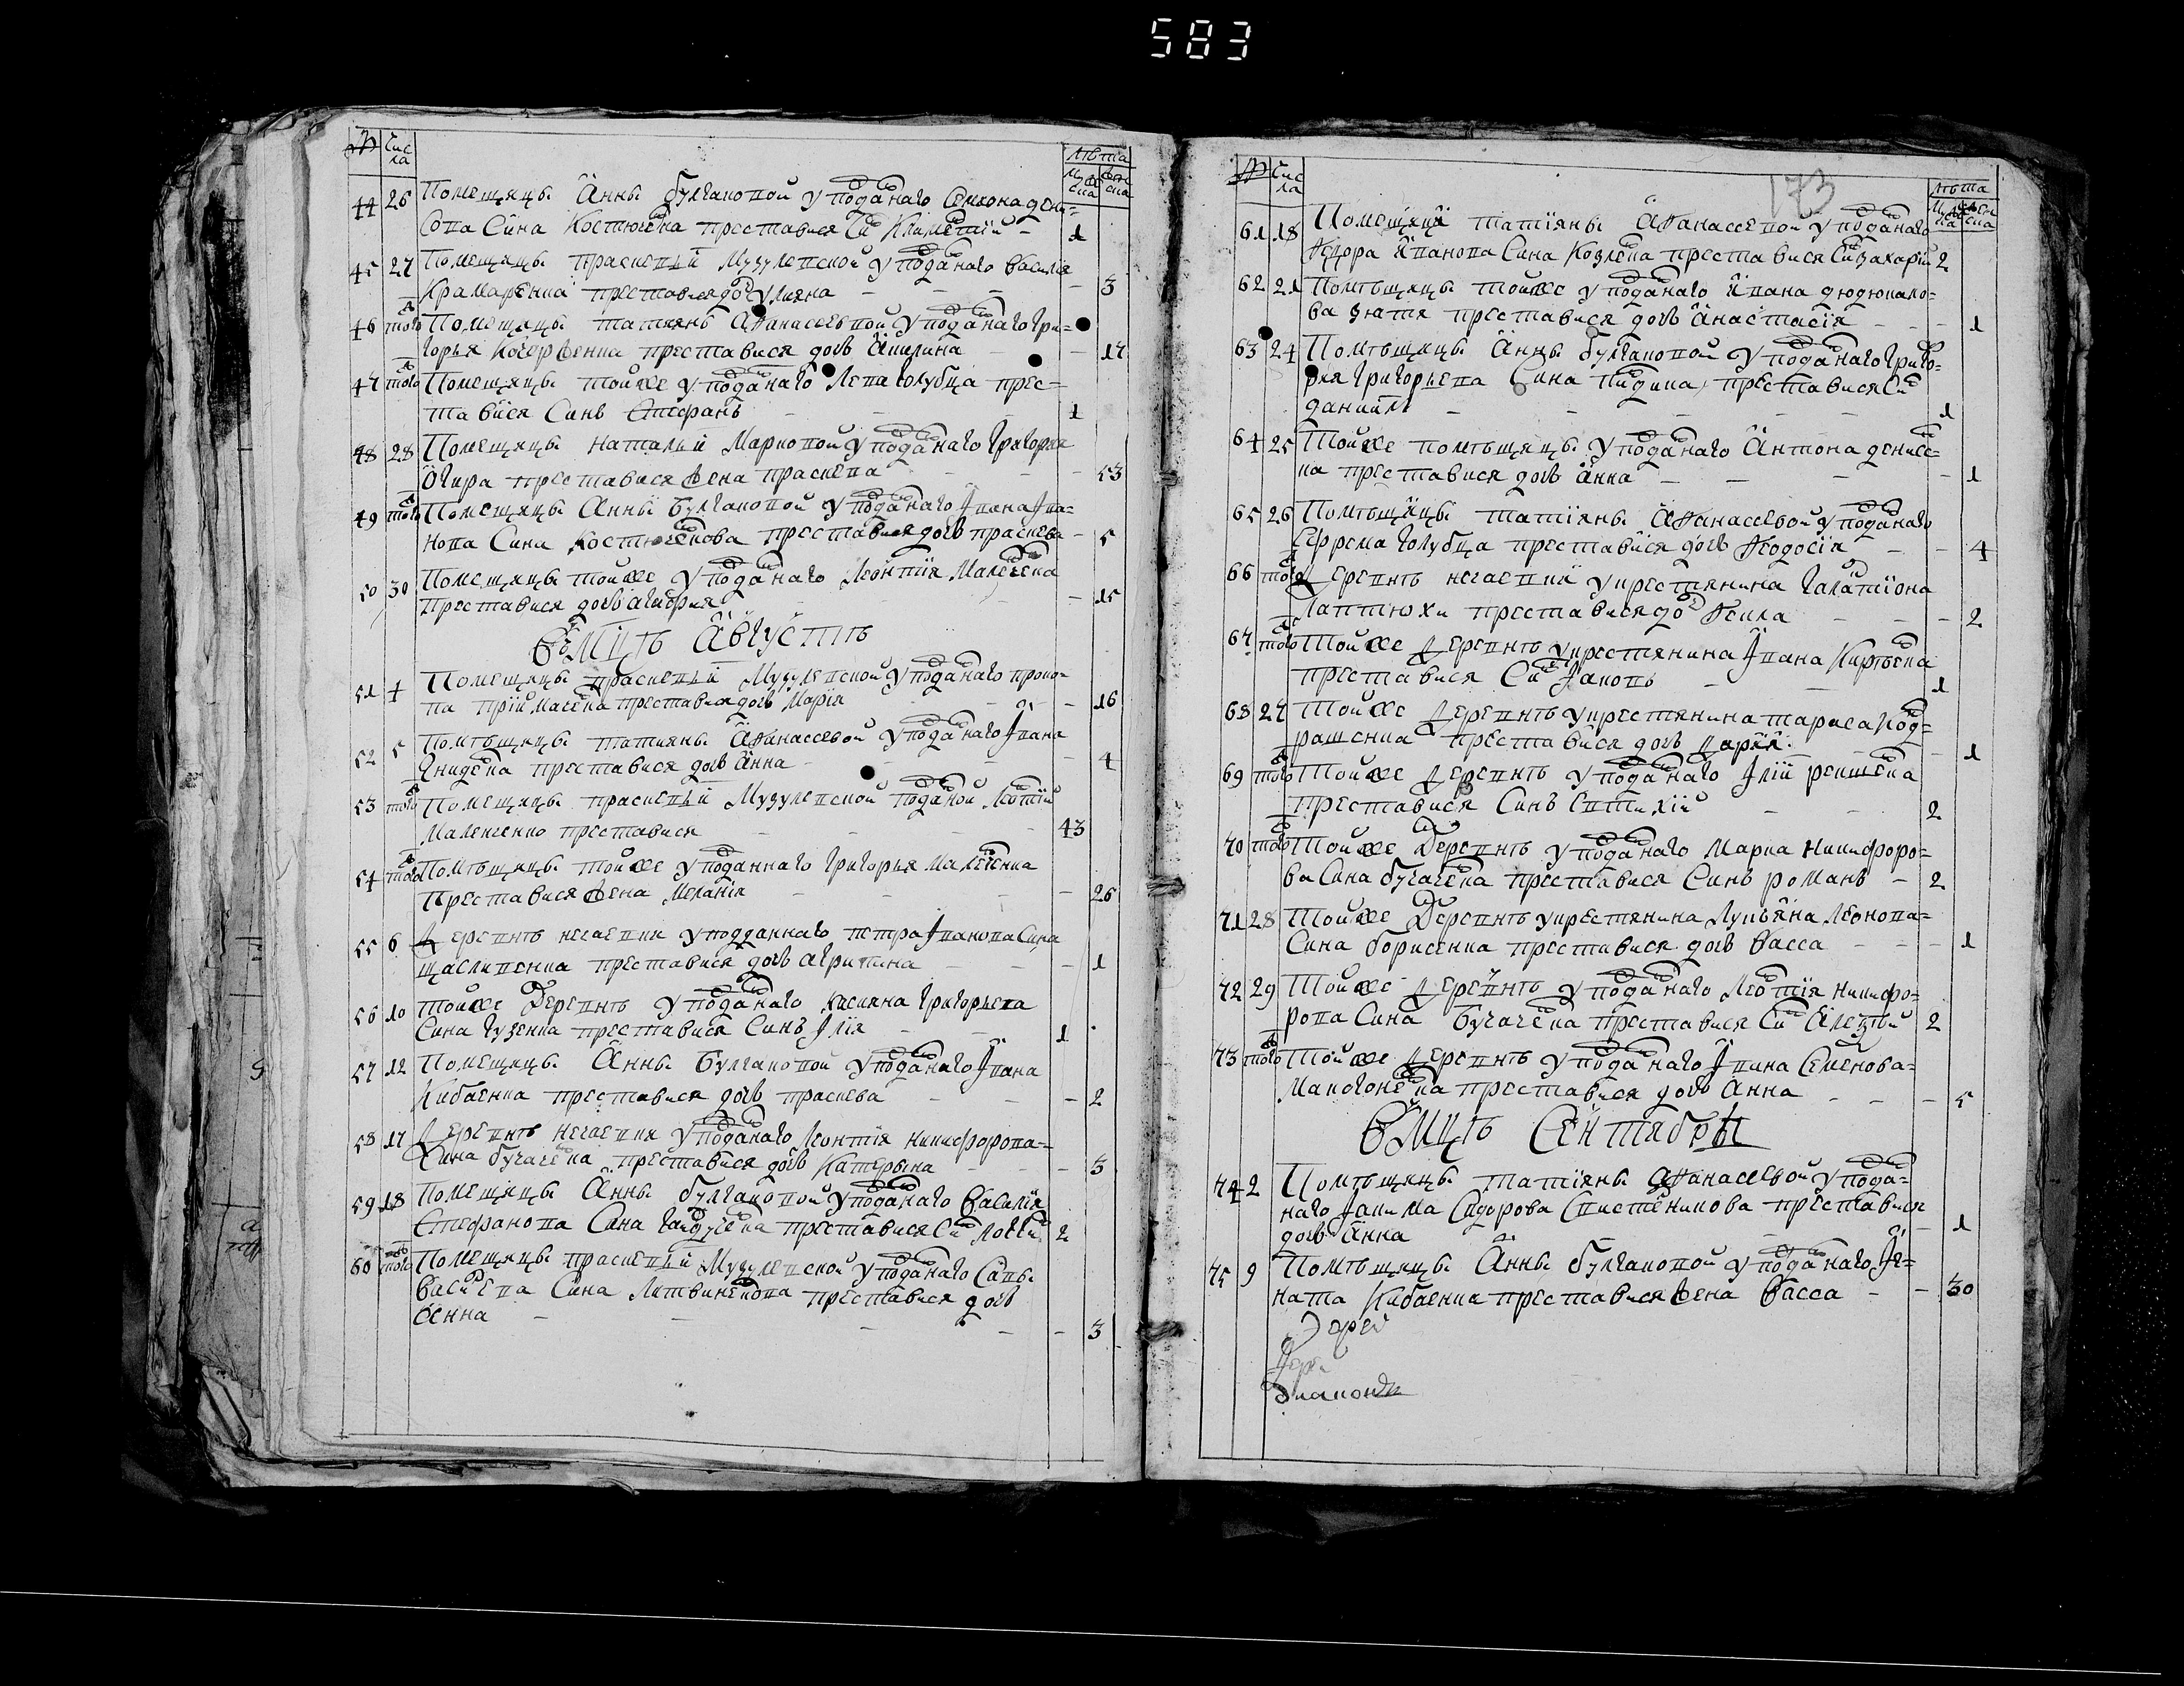 583
№ Чис
ла
лѣта
Муже
ска Жен
ска
44 26 Помещицы Анны Булгаковой у подданаго Симона Дени=
сова Сина Костюченка преставися Си Климентий - 1
45 27 Помещицы Прасковьи Музулевской у подданаго Василия
Крамаренка преставися до Улияна - 3
46 того Помещицы Татияны Афанасьевной у подданаго Гри=
горья Кочерженка преставися дочь Акилина - 17
47 того Помещицы тойже у подданаго Лева Голубца прес=
тавися Синъ Стефанъ - 1
48 28 Помещицы Наталии Марковой у подданаго Григория
Огира преставися жена Прасковя - 53
49 того Помещицы Анны Булгаковой у подданаго Ивана Ива=
нова Сина Костюченкова преставися дочь Прасковя - 5
50 30 Помещицы тойже у подданаго Леонтия Маленченка
преставися дочь Агафия - 15
В Мцѣ Августѣ
51 4 Помещицы Прасковьи Музулевской у подданаго Проко=
па Приймаченка преставися дочь Мария - 16
52 5 Помѣщицы Татияны Афанасьевой у подданаго Ивана
Гниденка преставися дочь Анна - 4
53 того Помещицы Прасковьи Музулевской подданой Леонтий
Маленченко преставися - 43
54 того Помѣщицы тойже у подданнаго Григорья Маленченка
преставися жена Мелания - 26
55 6 Деревнѣ Нечаевки у подданнаго Петра Иванова Сина
Щасливенка преставися дочь Агрипина - 1
56 10 Тойже Деревнѣ у подданаго Касияна Григорьева
Сина Гузенка преставися Синъ Илия - 1
57 12 Помещицы Анны Булгаковой у подданаго Ивана
Кибаенка преставися дочь Прасковя - 2
58 17 Деревнѣ Нечаевки у подданаго Леонтия Никифорова
Сина Бугаченка преставися дочь Катерина - 3
59 18 Помещицы Анны Булгаковой у подданаго Василия
Стефанова Сина Гайдученка преставися Си 2
60 того Помещицы Прасковьи Музулевской у подданаго Савы
Василева Сина Литвиненкова преставися дочь
Анна - 3
№ Чис
ла
173
лѣта
Муже
ска Жен
ска
61 18 Помещици Татияны Афанасьевой у подданаго
Федора Иванова Сина Козленка преставися Си Захарий 2
62 21 Помѣщицы тойже у подданаго Ивана Дюдюкало=
ва зятя преставися дочь Анастасия - 1
63 24 Помѣщицы Анны Булгаковой у подданаго Григо=
рия Григорьева Сина преставися Си
Даниил - 1
64 25 Тойже помѣщицы у подданаго Антона Денисен=
ка преставися дочь Анна - 1
65 26 Помѣщицы Татияны Афанасьевой у подданаго
Ефрема Голубца преставися дочь Феодосия - 4
66 того Деревнѣ Нечаевки у крестянина Галатиона
Лаптюхи преставися до Фекла - 2
67 того Тойже Деревнѣ у крестянина Ивана Кирѣенка
преставися Си Иаковъ - 1
68 27 Тойже Деревнѣ у крестянина Тараса Конд=
рашенка преставися дочь Дария - 1
69 того Тойже Деревнѣ у подданаго Илии Рекшенка
преставися Синъ Евтихий - 2
70 того Тойже Деревнѣ у подданаго Марка Никифоро=
ва Сина Бугаченка преставися Синъ Романъ - 2
71 28 Тойже Деревнѣ у крестянина Лукьяна Леонова=
Сина Борисенка преставися дочь Васса - 1
72 29 Тойже Деревнѣ у подданаго Леонтия Никифо=
рова Сина Бугаченка преставися Си Алексѣй 2
73 того Тойже Деревнѣ у подданаго Ивана Семенова=
Макогоненка преставися дочь Анна - 5
В Мцѣ Сентябрѣ
74 2 Помѣщицы Татияны Афанасьевой у пода=
наго Иакима Сидорова преставися
дочь Анна - 1
75 9 Помѣщицы Анны Булгаковой у подданаго Иг=
ната Кибаенка преставися жена Васса - 30
Иерей
Иерей
Диаконъ